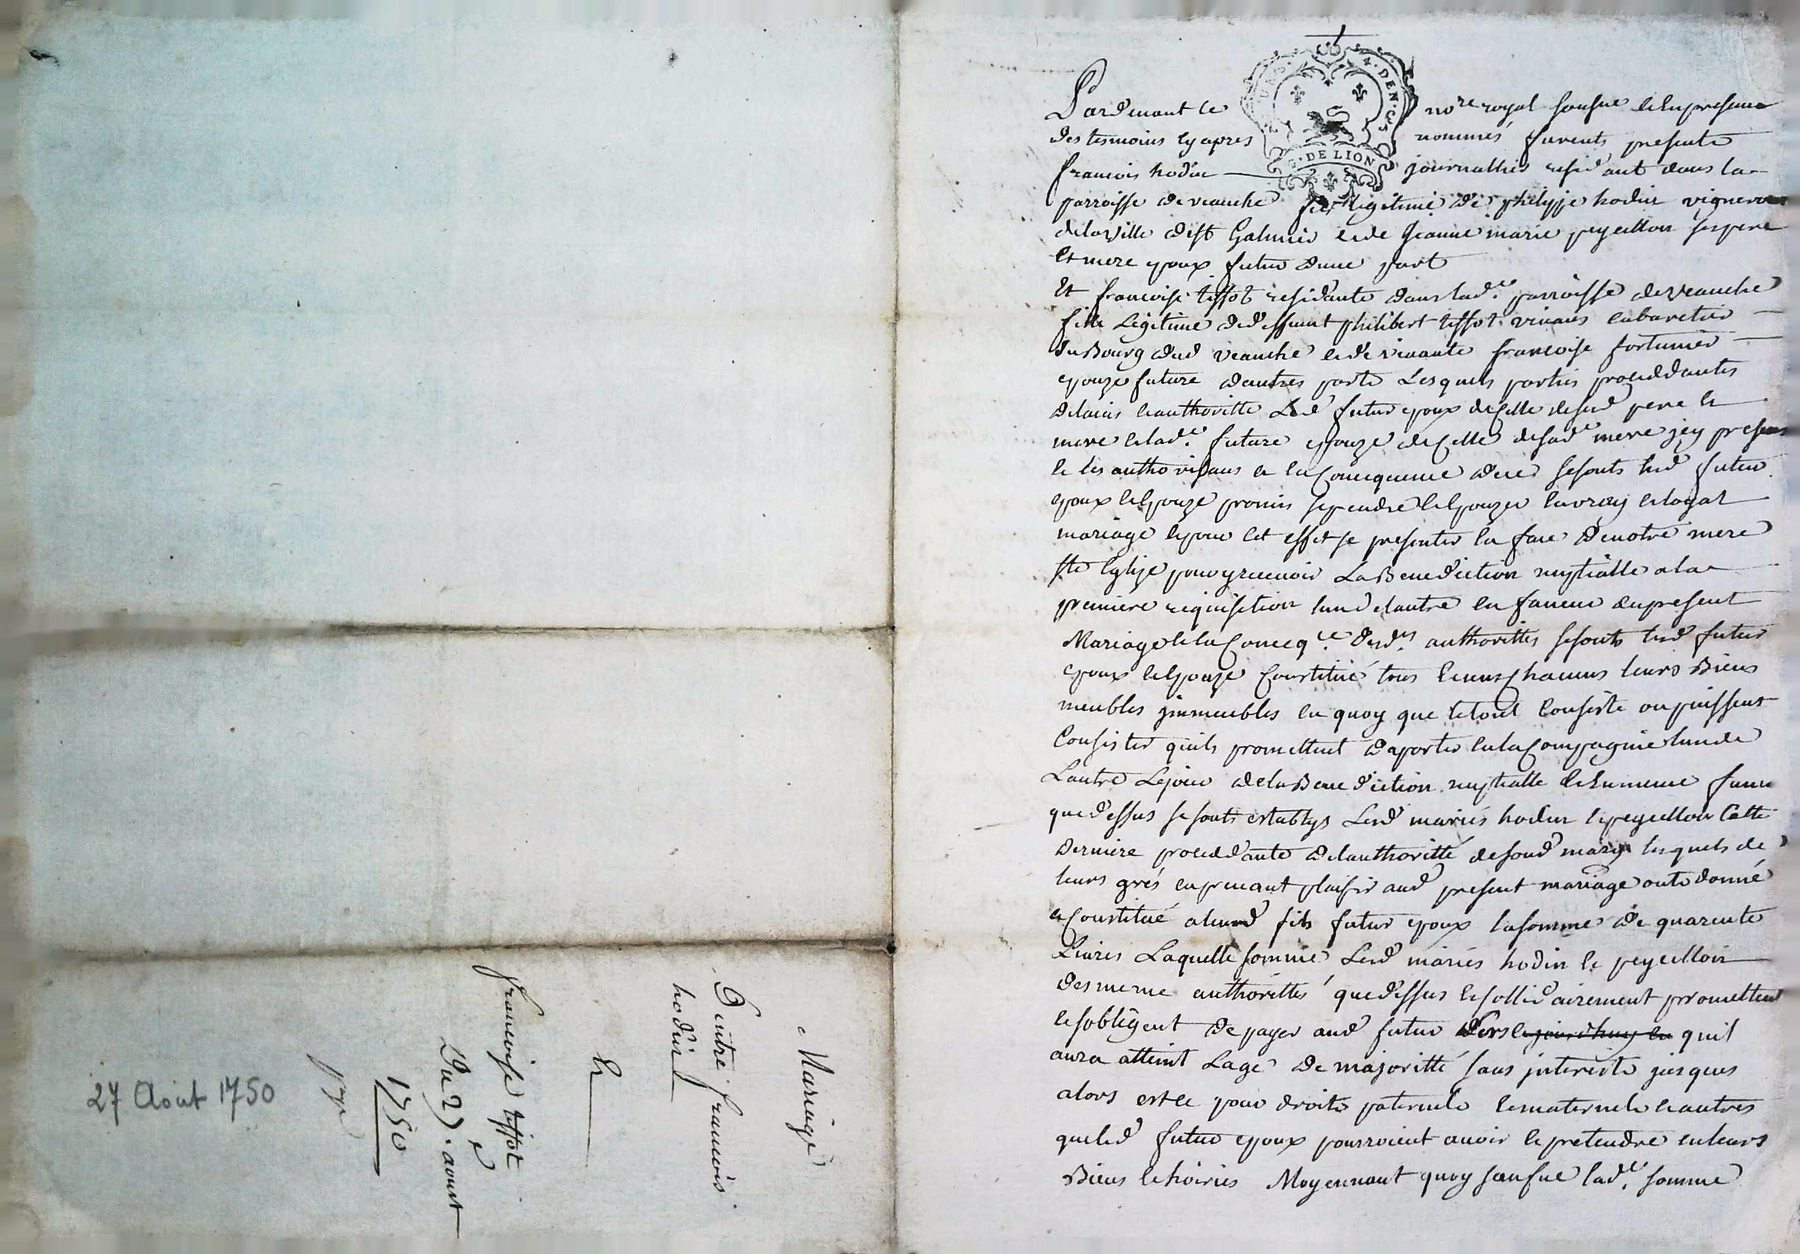 Mariage
Dentre francois
hodin
&
francoise tissot
Du 27. aoust
1750
27 Août 1750
GEN. DE LION
Pardevant le no.re royal soussne et en presence
des temoins cy apres nommés furents presents
francois hodin journallier residant dans la
parroisse de veauche fils legitime de philippe hodin vigneron
de la ville de st Galmier et de Jeanne marie peyeillon ses pere
et mere epoux futur dune part
Et francoise tissot residante dans lad.e parroisse de veauche
fille Legitime de deffunt philibert tissot vivant cabaretier
du Bourg dud veauche et de vivante francoise fortunier
epouze future dautres parts Lesquels parties proceddantes
de lavis et authoritte Led futur epoux de celle de sesd pere et
mere et lad.e future epouze de celle de sad.e mere jcy presens
et les authorisans et en Conequence de ce se sonts lesd futur
epoux et Epouze promis se prendre et Epouzer en vray et loyal
mariage et pour cet effet se presenter en face de notre mere
ste Eglize pour y recevoir La Benediction nuptialle a la
premiere requisition lun de lautre en faveur du present
Mariage et en Conecq.ce desd.es authorittes se sonts lesd futur
epoux et Epouze Constitué tous et uns Chacuns leurs Biens
meubles jmmeubles en quoy que le tout Consiste ou puissent
Consister quils promettent daporter en la Compagnie lun de
Lautre Le jour de la Benediction nuptialle et en meme faveur
que dessus se sonts establys Lesd mariés hodin et peyeillon Cette
derniere proceddante de lauthoritté de sond mary lesquels de
leurs grés en prenant plaisir aud present mariage onts donné
et Constitué a leurd fils futur epoux la somme de quarente
Livres Laquelle somme Lesd mariés hodin et peyeillon
des meme authorittés que dessus et sollidairement promettent
et sobligent de payer aud futur dors quil
aura atteint Lage de majoritté sans jnterests jusques
alors et ce pour droits paternels et maternels et autres
que led futur epoux pourroient avoir et pretendre en leurs
Biens et hoiries Moyennant quoy sansue lad.e somme